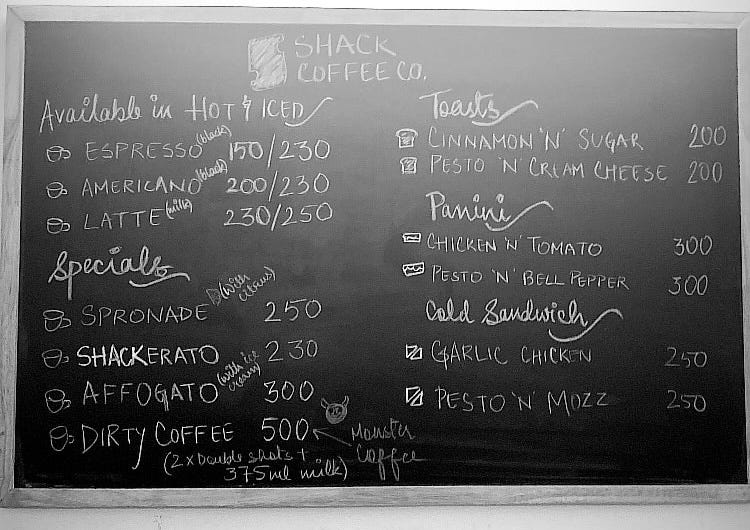 SHACK
COFFEE CO.
Available in HOT & ICED
ESPRESSO (black) 150/230
AMERICANO (black) 200/230
LATTE (milk) 230/250
Specials
SPRONADE (with citrus) 250
SHACKERATO 230
AFFOGATO (with ice cream) 300
DIRTY COFFEE 500
(2x Double shots +
375ml milk)
Monster
Coffee
Toasts
CINNAMON 'N' SUGAR 200
PESTO 'N' CREAM CHEESE 200
Panini
CHICKEN 'N' TOMATO 300
PESTO 'N' BELL PEPPER 300
Cold Sandwich
GARLIC CHICKEN 250
PESTO 'N' MOZZ 250